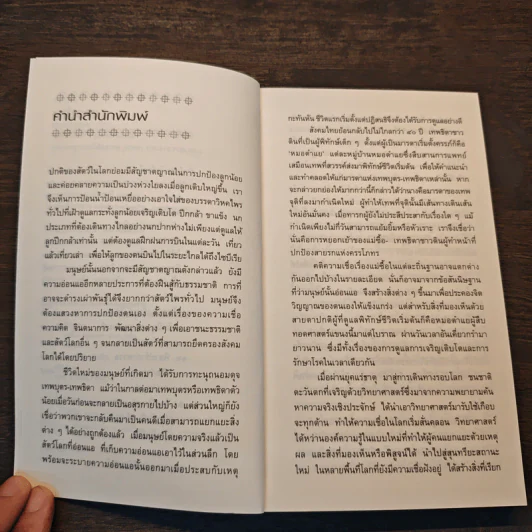 คำนำสำนักพิมพ์
ปกติของสัตว์ในโลกย่อมมีสัญชาตญาณในการปกป้องลูกน้อย
และค่อยคลายความเป็นห่วงห่วงใยลงเมื่อลูกเติบใหญ่ขึ้น เรา
จึงเห็นการป้อนน้ำป้อนเหยื่ออย่างเอาใจใส่ของบรรดาวิหคไพร
ทั่วไปที่เฝ้าดูแลกระทั่งลูกน้อยเจริญเติบโต ปีกกล้า ขาแข็ง นก
ประเภทที่ต้องเดินทางไกลอย่างนกปากห่างไม่เพียงแต่ดูแลให้
ลูกปีกกล้าเท่านั้น แต่ต้องดูแลฝึกฝนการบินในแต่ละวัน เที่ยว
แล้วเที่ยวเล่า เพื่อให้ลูกของตนบินไปในระยะไกลได้ถึงไซบีเรีย
มนุษย์นั้นนอกจากจะมีสัญชาตญาณดังกล่าวแล้ว ยังมี
ความอ่อนแออีกหลายประการที่ต้องฝืนสู้กับธรรมชาติ การที่
อาจจะดำรงเผ่าพันธุ์ได้จึงยากกว่าสัตว์ไพรทั่วไป มนุษย์จึง
ต้องแสวงหาการปกป้องตนเอง ตั้งแต่เรื่องของความเชื่อ
ความคิด จินตนาการ พัฒนาสิ่งต่าง ๆ เพื่อเอาชนะธรรมชาติ
และสัตว์โลกอื่น ๆ จนกลายเป็นสัตว์ที่สามารถยึดครองสังคม
โลกได้โดยปริยาย
ชีวิตใหม่ของมนุษย์ที่เกิดมา ได้รับการทะนุถนอมดุจ
เทพบุตร-เทพธิดา แม้ว่าในกาลต่อมาเทพบุตรหรือเทพธิดาตัว
น้อยเมื่อวันก่อนจะกลายเป็นอสุรกายไปบ้าง แต่ส่วนใหญ่ก็ยัง
เชื่อว่าพวกเขาจะกลับคืนมาเป็นคนดีเมื่อสามารถแยกแยะสิ่ง
ต่าง ๆ ได้อย่างถูกต้องแล้ว เมื่อมนุษย์โดยความจริงแล้วเป็น
สัตว์โลกที่อ่อนแอ ที่เก็บความอ่อนแอเอาไว้ในส่วนลึก โดย
พร้อมจะระบายความอ่อนแอนั้นออกมาเมื่อประสบกับเหตุ
กะทันหัน ชีวิตแรกเริ่มตั้งแต่ปฏิสนธิจึงต้องได้รับการดูแลอย่างดี
สังคมไทยย้อนกลับไปไม่ไกลกว่า ๕๐ ปี เทพธิดาชาว
ดินที่เป็นผู้พิทักษ์เด็ก ๆ ตั้งแต่ผู้เป็นมารดาเริ่มตั้งครรภ์ก็คือ
'หมอตำแย' แต่ละหมู่บ้านหมอตำแยซึ่งสืบสานการแพทย์
เสมือนเทพที่สวรรค์ส่งมาพิทักษ์ชีวิตเริ่มต้น เพื่อให้คำแนะนำ
และทำคลอดให้แก่มารดาแห่งเทพบุตร-เทพธิดาเหล่านั้น หาก
จะกล่าวยกย่องให้มากกว่านี้ก็กล่าวได้ว่านางคือมารดาของเทพ
จุติที่ลงมากำเนิดใหม่ ผู้ทำให้เทพที่จุตินั้นมีเส้นทางเดินเส้น
ใหม่อันมั่นคง เมื่อทารกผู้ยังไม่ประสีประสากับเรื่องใด ๆ แม้
กำเนิดเพียงไม่กี่วันสามารถแย้มยิ้มหรือหัวเราะ เราจึงเชื่อว่า
นั่นคือการหยอกเย้าของแม่ซื้อ- เทพธิดาชาวดินผู้ทำหน้าที่
ปกป้องสายรกแห่งครรโภทร
คติความเชื่อเรื่องแม่ซื้อในแต่ละถิ่นฐานอาจแตกต่าง
กันออกไปบ้างในรายละเอียด นั่นก็อาจมาจากข้อสันนิษฐาน
ที่ว่ามนุษย์นั้นอ่อนแอ จึงสร้างสิ่งต่าง ๆ ขึ้นมาเพื่อประคองจิต
วิญญาณของตนเองให้แข็งแกร่ง แต่สำหรับสิ่งที่มองเห็นด้วย
สายตาปกติผู้ที่ดูแลพิทักษ์ชีวิตเริ่มต้นก็คือหมอตำแยผู้สืบ
ทอดศาสตร์แขนงนี้มาแต่โบราณ ผ่านวันเวลาอันเคี่ยวกรำมา
ยาวนาน ซึ่งมีทั้งเรื่องของการดูแลการเจริญเติบโตและการ
รักษาโรคในเวลาเดียวกัน
เมื่อผ่านยุคแร่ธาตุ มาสู่การเดินทางรอบโลก ชนชาติ
ตะวันตกที่เจริญด้วยวิทยาศาสตร์ซึ่งมาจากความพยายามค้น
หาความจริงเชิงประจักษ์ ได้นำเอาวิทยาศาสตร์มารับใช้เกือบ
จะทุกด้าน ทำให้ความเชื่อในโลกเริ่มสั่นคลอน วิทยาศาสตร์
ได้หว่านองค์ความรู้ในแบบใหม่ที่ทำให้ผู้คนแยกแยะด้วยเหตุ
ผล และสิ่งที่มองเห็นหรือพิสูจน์ได้ นำไปสู่สุนทรียะสถานะ
ใหม่ ในหลายพื้นที่โลกที่ยังมีความเชื่อฝังอยู่ ได้สร้างสิ่งที่เรียก